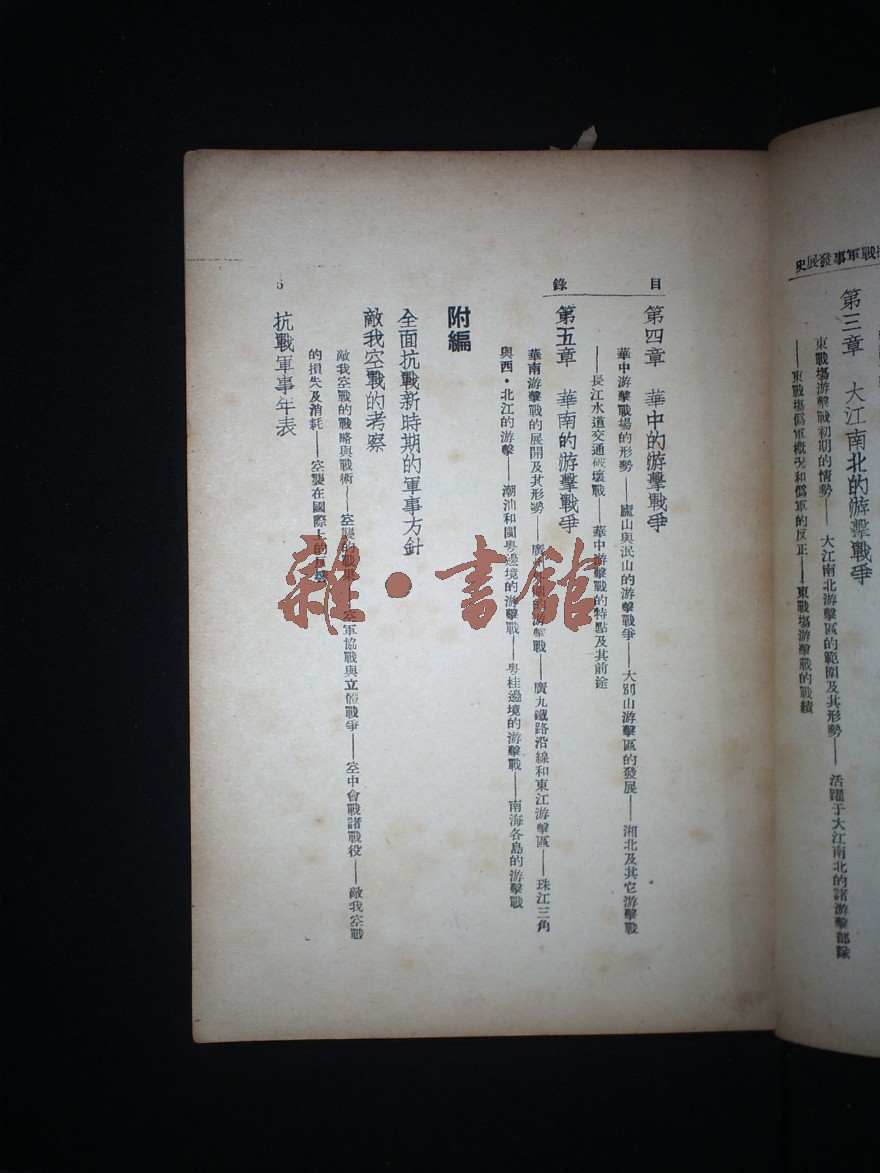 戰軍事發展史
第三章　大江南北的游擊戰爭
東戰塲游擊戰初期的情勢——大江南北游擊區的範圍及其形勢——活躍于大江南北的諸游擊部隊
——東戰塲僞軍概况和僞軍的反正——東戰塲游擊戰的戰績
目錄
第四章　華中的游擊戰爭
華中游擊戰場的形勢——廬山與泯山的游擊戰爭——大別山游擊區的發展——湘北及其它游擊戰
——長江水道交通破壞戰——華中游擊戰的特點及其前途
第五章　華南的游擊戰爭
華南游擊戰的展開及其形勢——廣游擊戰——廣九鐵路沿線和東江游擊區——珠江三角
與西·北江的游擊——潮汕和閩粤邊境的游擊戰——粤桂邊境的游擊戰——南海各島的游擊戰
附編
全面抗戰新時期的軍事方針
敵我空戰的考察
敵我空戰的戰略與戰術——空襲的戰果——空軍協戰與立體戰爭——空中會戰諸戰役——敵我空戰
的損失及消耗——空襲在國際上的反
抗戰軍事年表
6
雜·書館